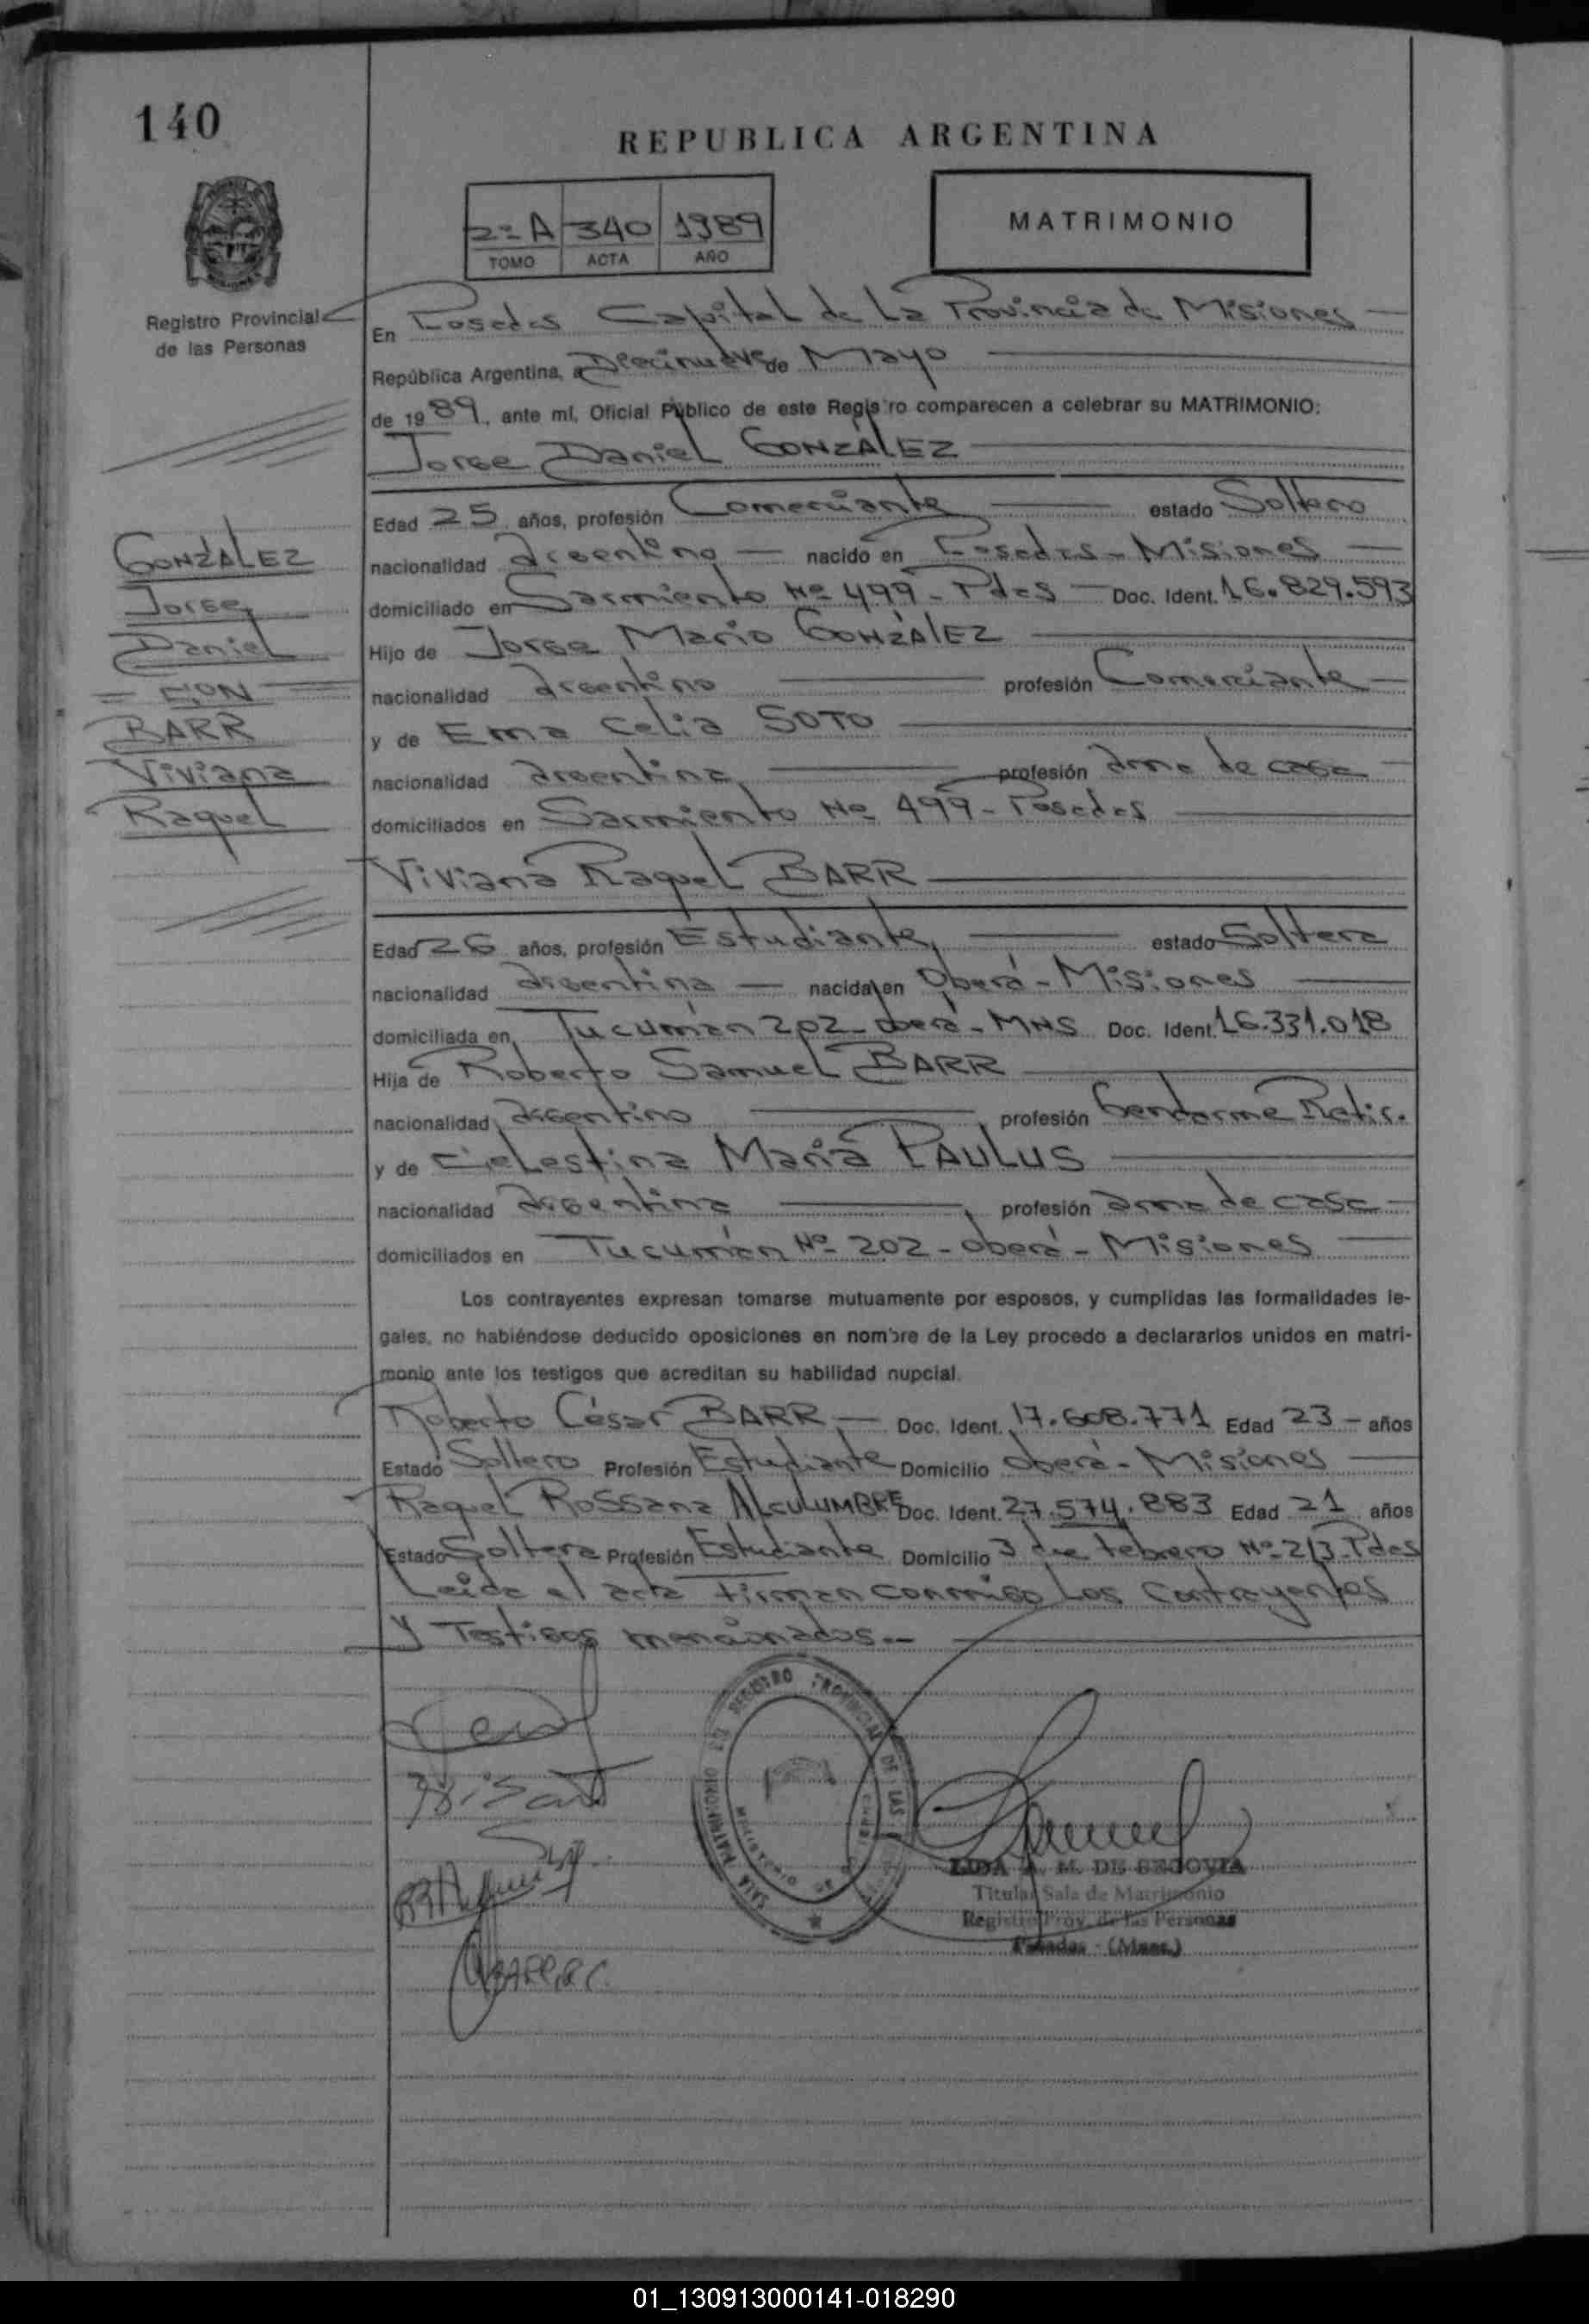 140
REPUBLICA ARGENTINA
2ª A 340 1989
TOMO ACTA AÑO
MATRIMONIO
Registro Provincial
de las Personas
En Posadas Capital de La Provincia de Misiones
República Argentina, a Diecinueve de Mayo
de 1989, ante mí, Oficial Público de este Registro comparecen a celebrar su MATRIMONIO:
Jorge Daniel GONZÁLEZ
Edad 25 años, profesión Comerciante estado Soltero
nacionalidad argentino nacido en Posadas - Misiones
domiciliado en Sarmiento Nº 499 - Pdas Doc. Ident. 16.829.593
Hijo de Jorge Mario GONZÁLEZ
nacionalidad argentino profesión Comerciante
y de Ema Celia SOTO
nacionalidad argentina profesión ama de casa
domiciliados en Sarmiento Nº 499 - Posadas
GONZÁLEZ
Jorge
Daniel
= CON =
BARR
Viviana
Raquel
Viviana Raquel BARR
Edad 26 años, profesión Estudiante estado Soltera
nacionalidad argentina nacida en Oberá - Misiones
domiciliada en Tucumán 202 - Oberá - MNS Doc. Ident. 16.331.018
Hija de Roberto Samuel BARR
nacionalidad argentino profesión Gendarme Retir.
y de Celestina María PAULUS
nacionalidad argentina profesión ama de casa
domiciliados en Tucumán Nº 202 - Oberá - Misiones
Los contrayentes expresan tomarse mutuamente por esposos, y cumplidas las formalidades le-
gales, no habiéndose deducido oposiciones en nombre de la Ley procedo a declararlos unidos en matri-
monio ante los testigos que acreditan su habilidad nupcial.
Roberto César BARR Doc. Ident. 17.608.771 Edad 23 años
Estado Soltero Profesión Estudiante Domicilio Oberá - Misiones
Raquel Rossana ALCULUMBRE Doc. Ident. 27.574.883 Edad 21 años
Estado Soltera Profesión Estudiante Domicilio 3 de febrero Nº 213 - Pdas
Leída el acta firman conmigo Los Contrayentes
y Testigos mencionados.-
REGISTRO PROVINCIAL DE LAS
SALA MATRIMONIO
LIDA A. M. DE SEGOVIA
Titular Sala de Matrimonio
Registro Prov. de las Personas
Posadas - (Mnes.)
BARR R C
01_130913000141-018290